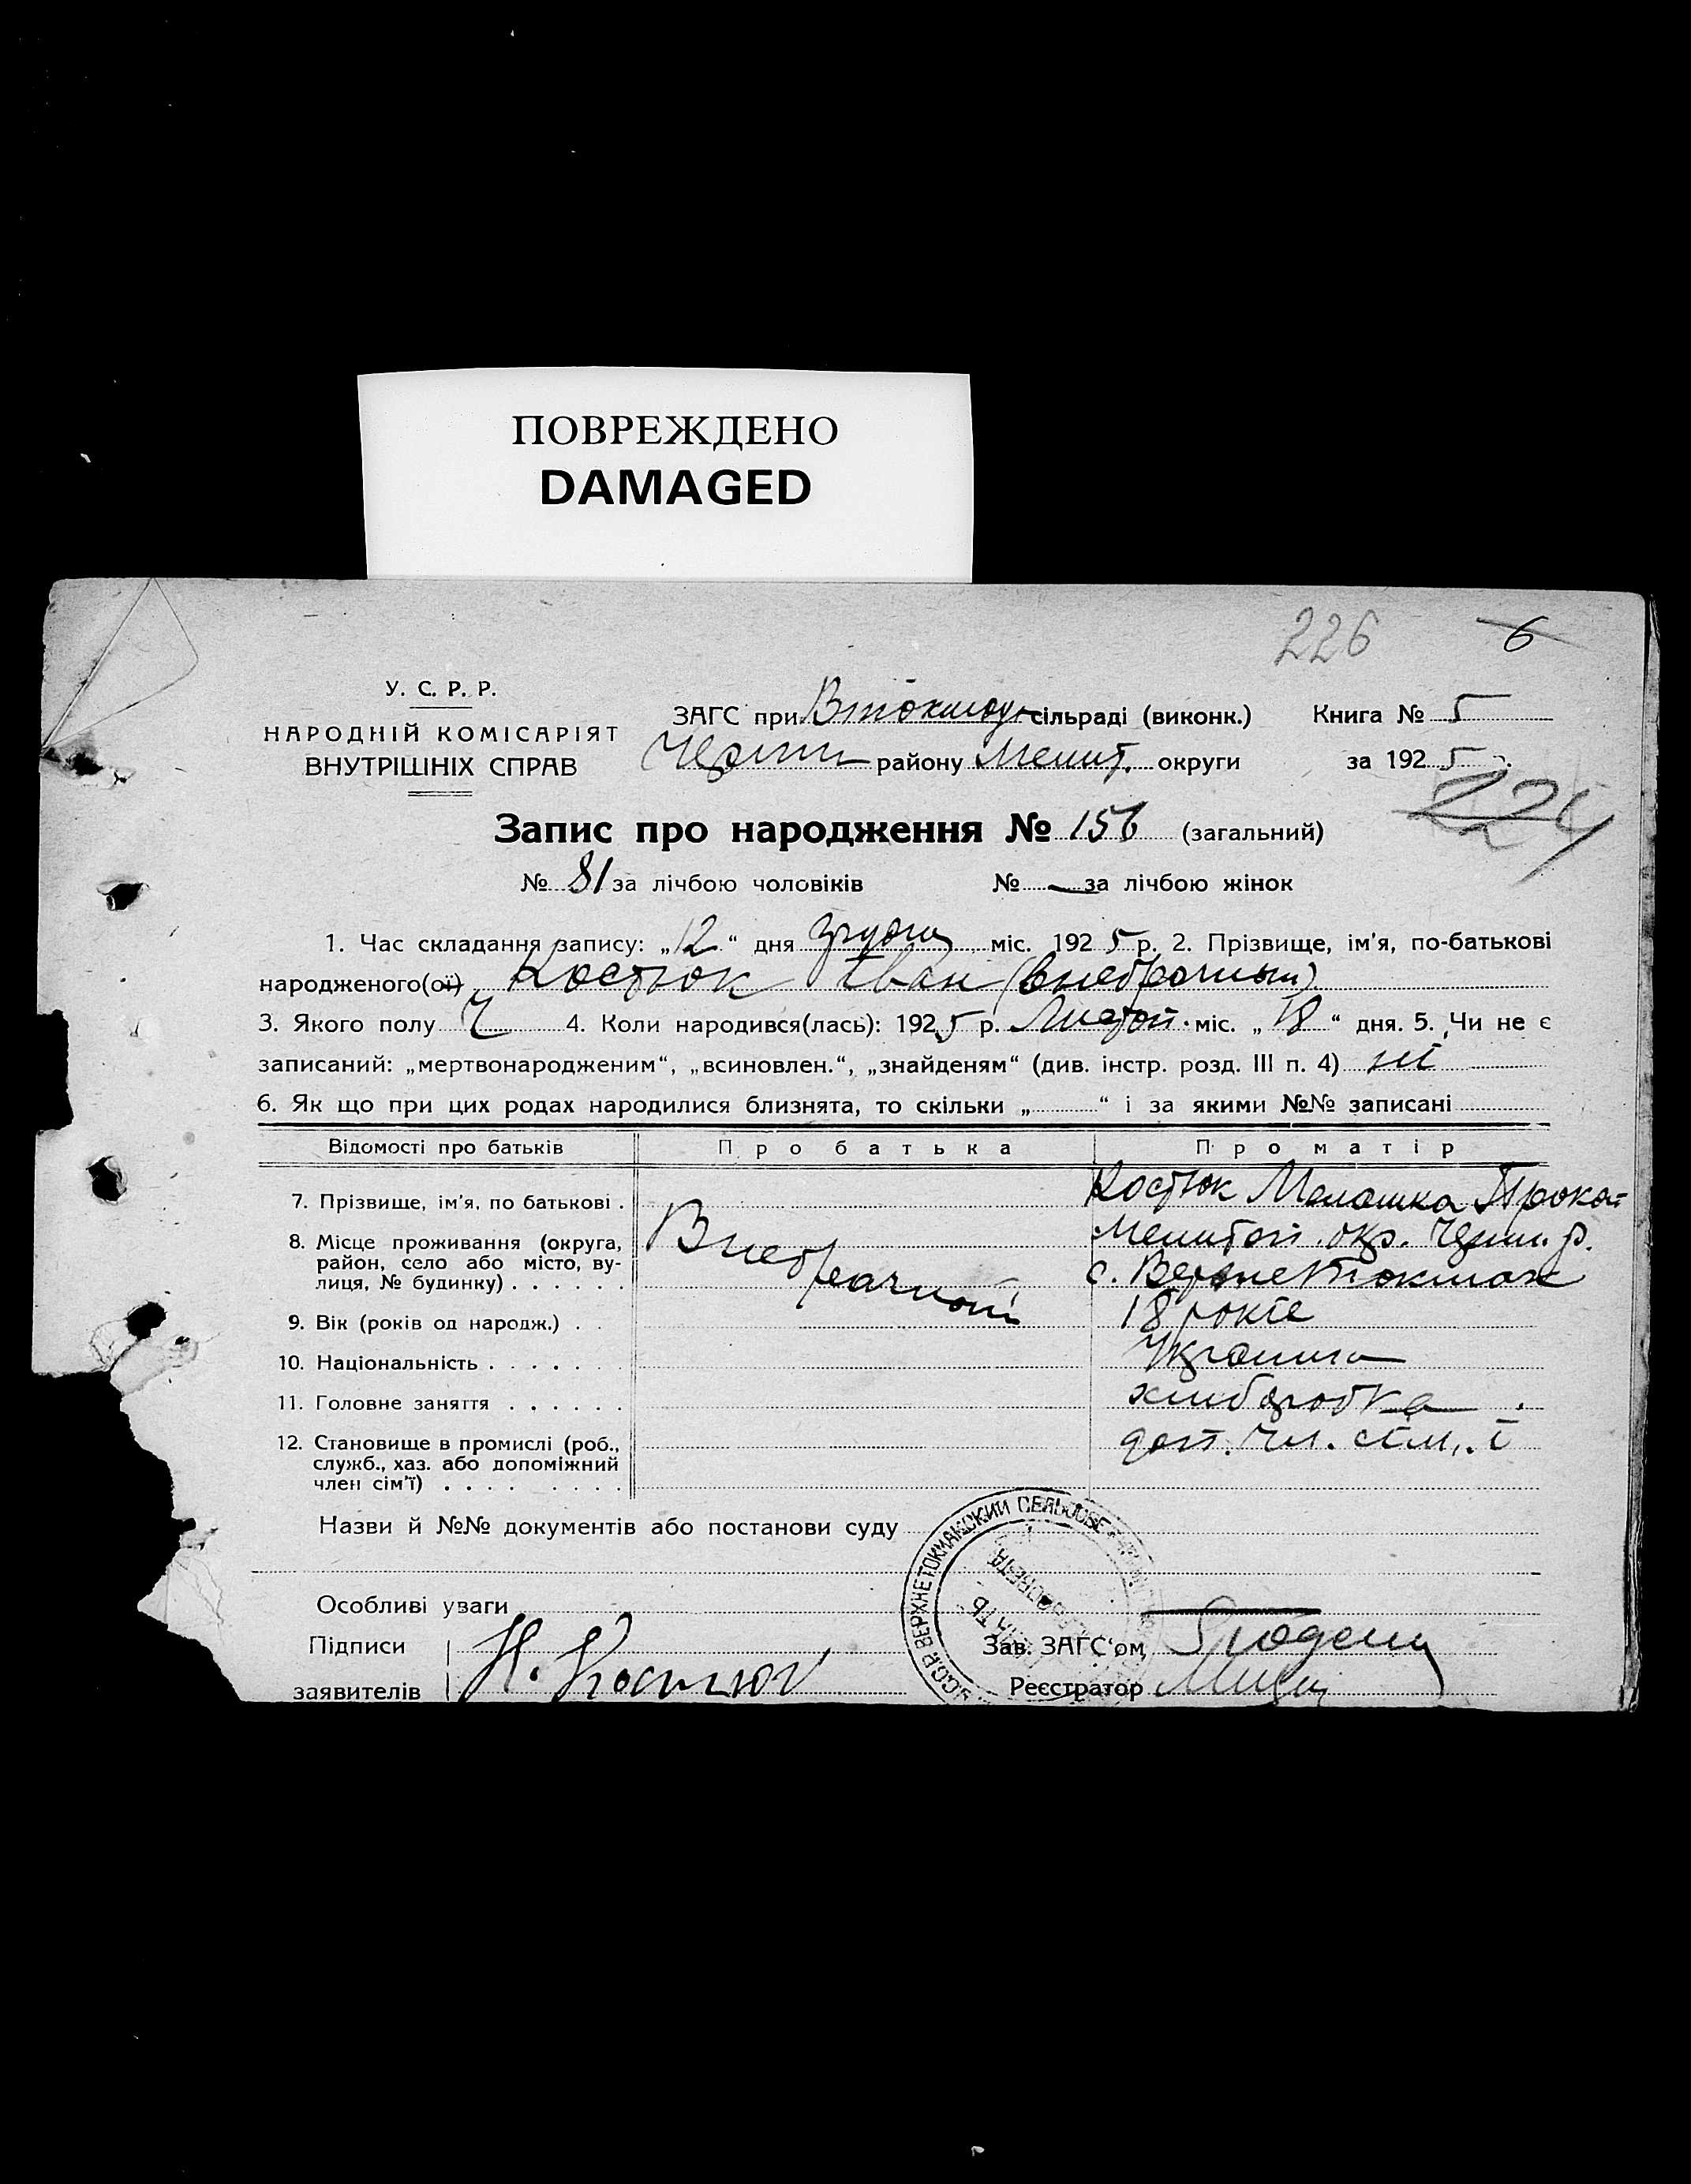 ПОВРЕЖДЕНО
DAMAGED
226 6
У. С. Р. Р.
НАРОДНІЙ КОМІСАРІЯТ
ВНУТРІШНІХ СПРАВ
ЗАГС при сільраді (виконк.) Книга № 5
району Мелит. округи за 1925 р.
224
Запис про народження № 156 (загальний)
№ 81 за лічбою чоловіків № — за лічбою жінок
1. Час складання запису: „12“ дня грудня міс. 1925 р. 2. Прізвище, ім'я, по-батькові
народженого(ої) Костюк Іван (внебрачный)
3. Якого полу Ч 4. Коли народився(лась): 1925 р. Листоп. міс. „18“ дня. 5. Чи не є
записаний: „мертвонародженим“, „всиновлен.“, „знайденям“ (див. інстр. розд. III п. 4) ні
6. Як що при цих родах народилися близнята, то скільки „ “ і за якими №№ записані
Відомості про батьків Про батька Про матір
7. Прізвище, ім'я, по батькові . Костюк Мелашка Прокоп
8. Місце проживання (округа, район, село або місто, вулиця, № будинку) . . . . . . Внебрачный Мелитоп. окр. Черн. р.
с. Верхне Токмак
9. Вік (років од народж.) . . 18 років
10. Національність . . . . . . . Українка
11. Головне заняття . . . . . . хліборобка
12. Становище в промислі (роб., служб., хаз. або допоміжний член сім'ї) . . . . . . . . доп. чл. сім. ї
Назви й №№ документів або постанови суду
У.С.С.Р. ВЕРХНЕТОКМАКСКИЙ СЕЛЬСОВЕТ
Особливі уваги
Підписи
заявителів Н. Костюк
Зав. ЗАГС'ом
Реєстратор